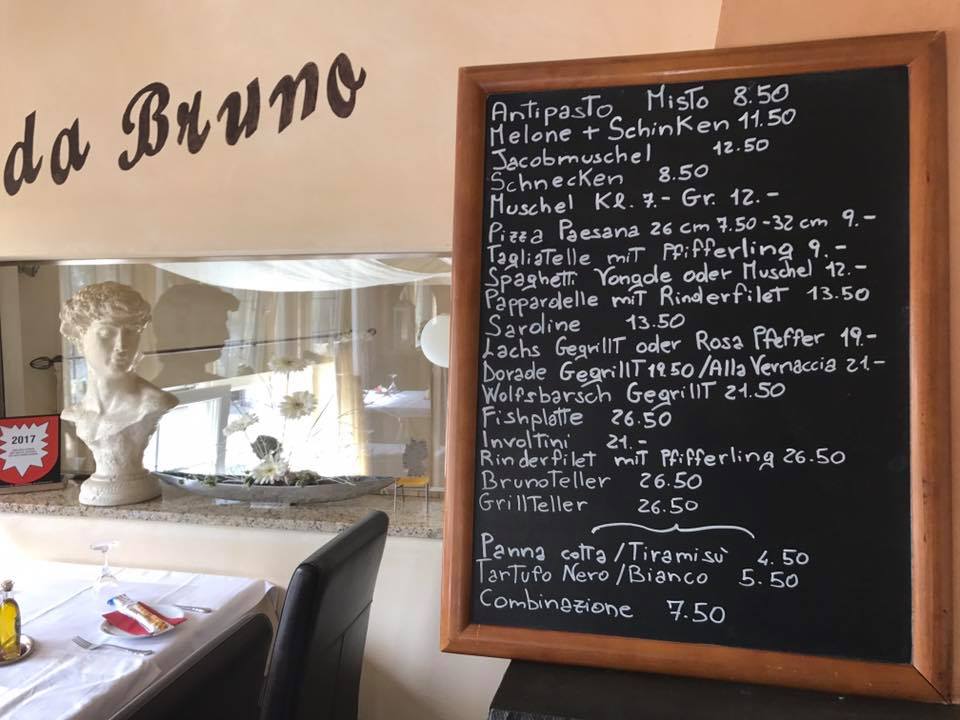 da Bruno
2017
Antipasto Misto 8.50
Melone + Schinken 11.50
Jacobmuschel 12.50
Schnecken 8.50
Muschel Kl. 7.- Gr. 12.-
Pizza Paesana 26 cm 7.50 - 32 cm 9.-
Tagliatelle mit Pfifferling 9.-
Spaghetti Vongole oder Muschel 12.-
Pappardelle mit Rinderfilet 13.50
Sardine 13.50
Lachs Gegrillt oder Rosa Pfeffer 19.-
Dorade Gegrillt 19.50 /Alla Vernaccia 21.-
Wolfsbarsch Gegrillt 21.50
Fishplatte 26.50
Involtini 21.-
Rinderfilet mit Pfifferling 26.50
Brunoteller 26.50
Grillteller 26.50
Panna cotta /Tiramisù 4.50
Tartufo Nero /Bianco 5.50
Combinazione 7.50